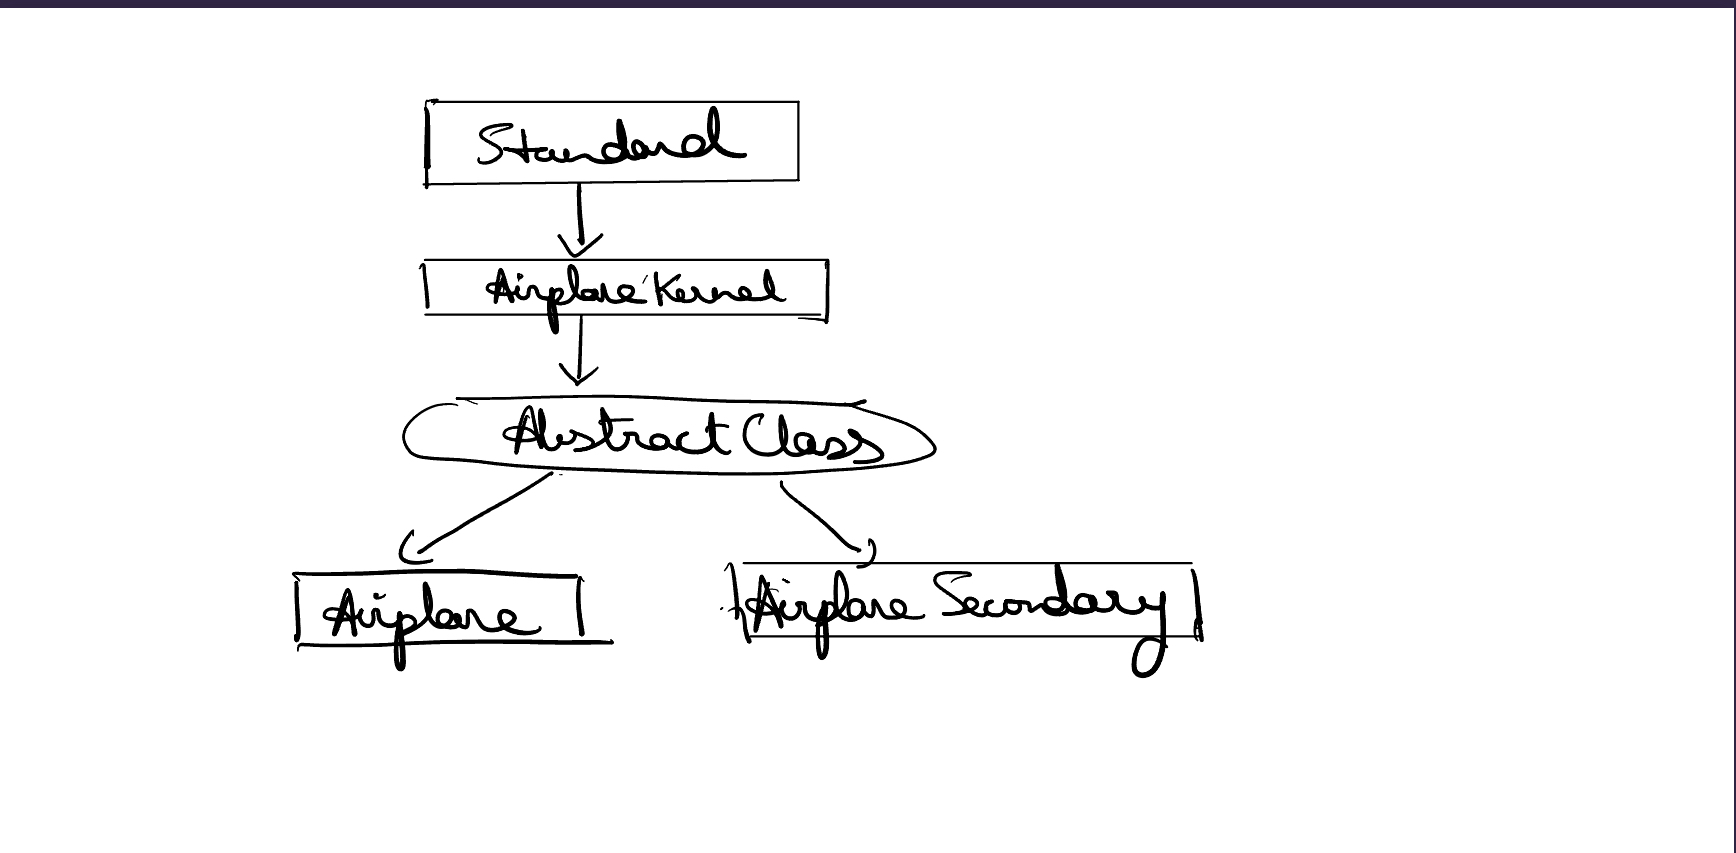 Standard
Airplane Kernel
Abstract Class
Airplane
Airplane Secondary